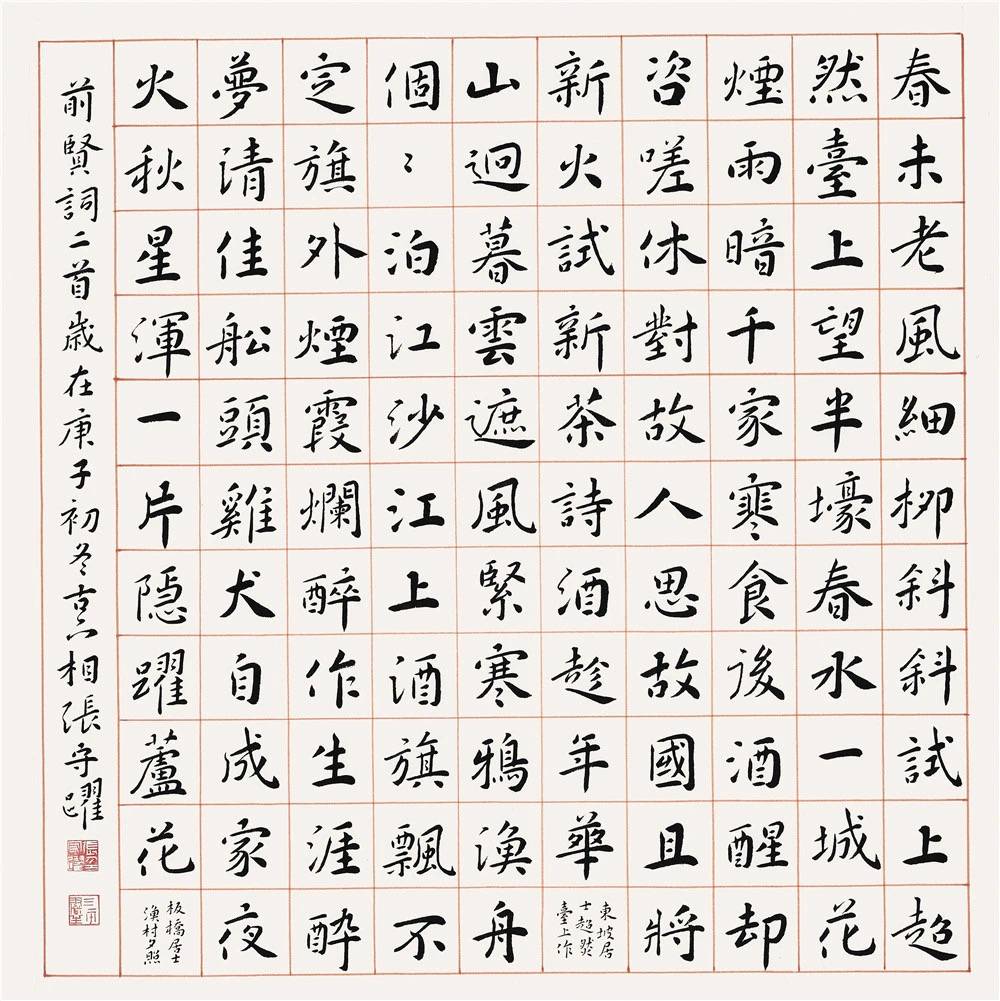 春未老風細柳斜斜試上超
然臺上望半壕春水一城花
煙雨暗千家寒食後酒醒却
咨嗟休對故人思故國且將
新火試新茶詩酒趁年華
東坡居
士超然
臺上作
山迥暮雲遮風緊寒鴉漁舟
個〻泊江沙江上酒旗飄不
定旗外煙霞爛醉作生涯酔
夢清佳舩頭雞犬自成家夜
火秋星渾一片隐躍蘆花
板橋居士
漁村夕照
前賢詞二首歲在庚子初冬相張守躍